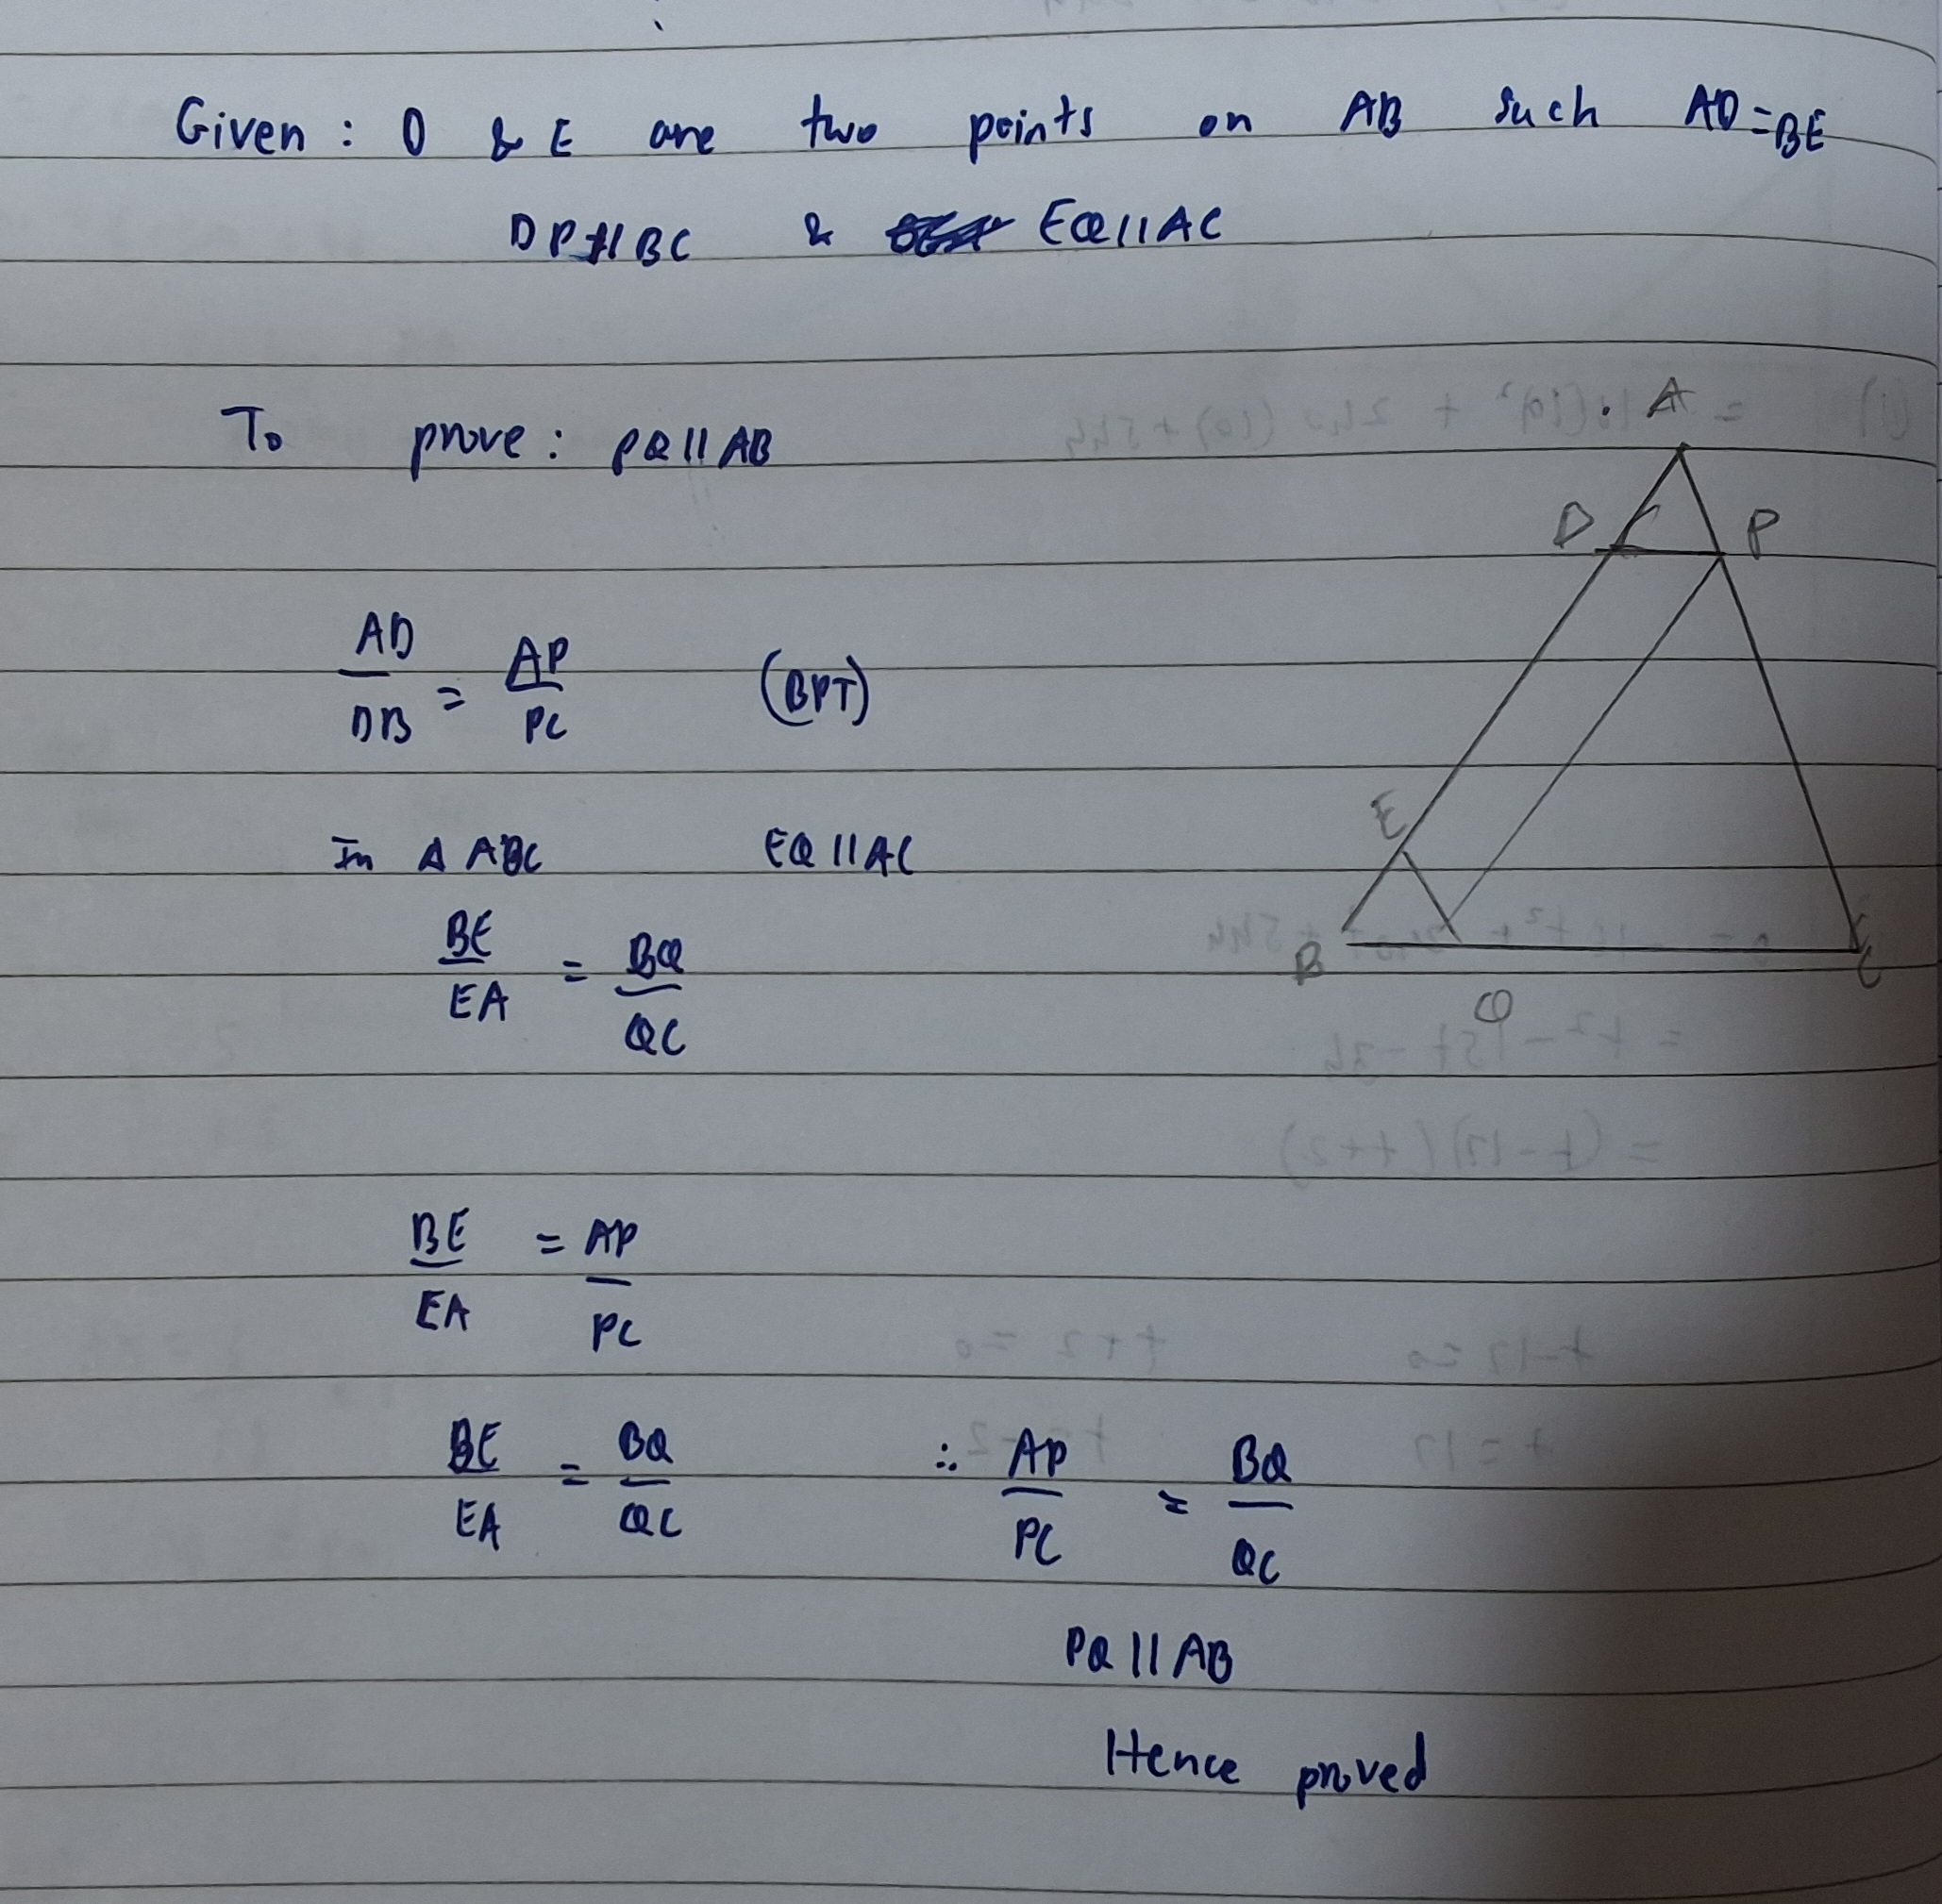 Given : D & E are two points on AB such AD = BE
DP || BC & EQ || AC
To prove : PQ || AB
A
D P
AD/DB = AP/PC (BPT)
E
In Δ ABC EQ || AC
BE/EA = BQ/QC
B C
Q
BE/EA = AP/PC
BE/EA = BQ/QC ∴ AP/PC = BQ/QC
PQ || AB
Hence proved